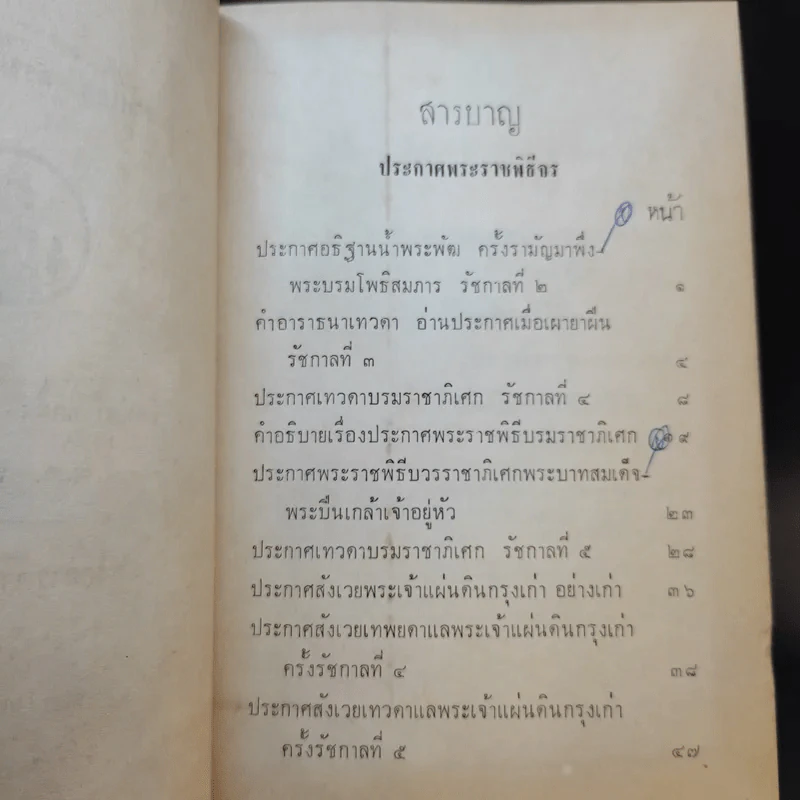 สารบาญ
ประกาศพระราชพิธีจร
หน้า
ประกาศอธิฐานน้ำพระพัฒ ครั้งรามัญมาพึ่ง
พระบรมโพธิสมภาร รัชกาลที่ ๒ ๑
คำอาราธนาเทวดา อ่านประกาศเมื่อเผายาฝิ่น
รัชกาลที่ ๓ ๔
ประกาศเทวดาบรมราชาภิเศก รัชกาลที่ ๔ ๘
คำอธิบายเรื่องประกาศพระราชพิธีบรมราชาภิเศก ๑๙
ประกาศพระราชพิธีบวรราชาภิเศกพระบาทสมเด็จ
พระปิ่นเกล้าเจ้าอยู่หัว ๒๓
ประกาศเทวดาบรมราชาภิเศก รัชกาลที่ ๕ ๒๘
ประกาศสังเวยพระเจ้าแผ่นดินกรุงเก่า อย่างเก่า ๓๖
ประกาศสังเวยเทพยดาแลพระเจ้าแผ่นดินกรุงเก่า
ครั้งรัชกาลที่ ๔ ๓๘
ประกาศสังเวยเทวดาแลพระเจ้าแผ่นดินกรุงเก่า
ครั้งรัชกาลที่ ๕ ๔๗